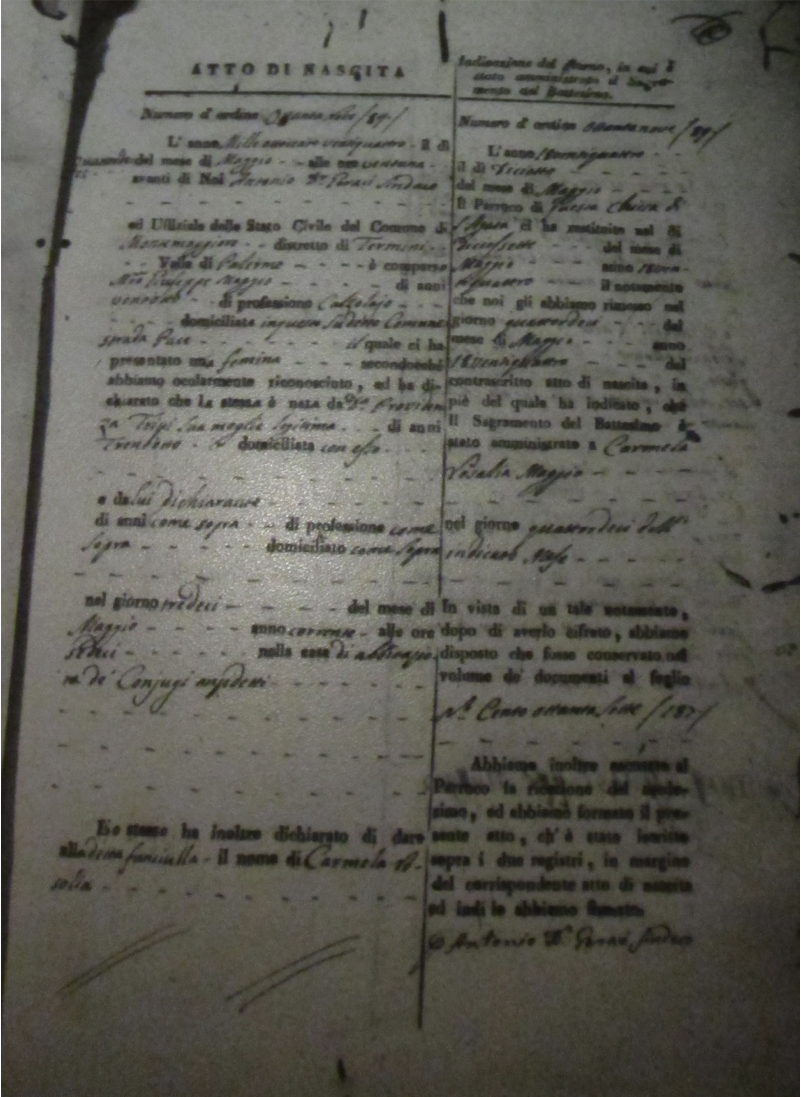 ATTO DI NASCITA
Numero d'ordine Ottanta nove /89/
L'anno Mille ottocento ventiquattro - il di
del mese di Maggio - alle ore ventuna
avanti di Noi Antonio Sindaco
ed Uffiziale dello Stato Civile del Comune di
Montemaggiore - distretto di Termini
Valle di Palermo - è comparso
Mro Giuseppe Maggio di anni
- di professione Calzolajo
domiciliato in questo sudetto Comune
strada Pace - il quale ci ha
presentato una femina - secondochè
abbiamo ocularmente riconosciuto, ed ha di-
chiarato che la stessa è nata da Providen
za Tripi sua moglie legitima - di anni
domiciliata con esso
e da lui dichiarante
di anni come sopra - di professione come
sopra - domiciliato come sopra
nel giorno tredeci - del mese di
Maggio - anno corrente - alle ore
sedeci - nella casa di abitazio
ne de' Conjugi anzidetti
Lo stesso ha inoltre dichiarato di dare
alla detta fanciulla - il nome di Carmela Ro-
salia
Indicazione del giorno, in cui è
stato amministrato il Sagra-
mento del Battesimo.
Numero d'ordine ottanta nove /89/
L'anno 18ventiquattro
il di Diciotto
del mese di Maggio
Il Parroco di questa Chiesa di
S. Agata ci ha restituito nel di
Diciassette - del mese di
Maggio - anno 18ven-
tiquattro - il notamento
che noi gli abbiamo rimesso nel
giorno quattordeci - del
mese di Maggio - anno
18ventiquattro - del
controscritto atto di nascita, in
piè del quale ha indicato, che
il Sagramento del Battesimo è
stato amministrato a Carmela
Rosalia Maggio
nel giorno quattordeci dell'
indicato Mese
In vista di un tale notamento,
dopo di averlo cifrato, abbiamo
disposto che fosse conservato nel
volume de' documenti al foglio
No. Cento ottanta sette /187/
Abbiamo inoltre accusato al
Parroco la ricezione del mede-
simo, ed abbiamo formato il pre-
sente atto, ch'è stato iscritto
sopra i due registri, in margine
del corrispondente atto di nascita
ed indi lo abbiamo firmato.
Antonio Sindaco